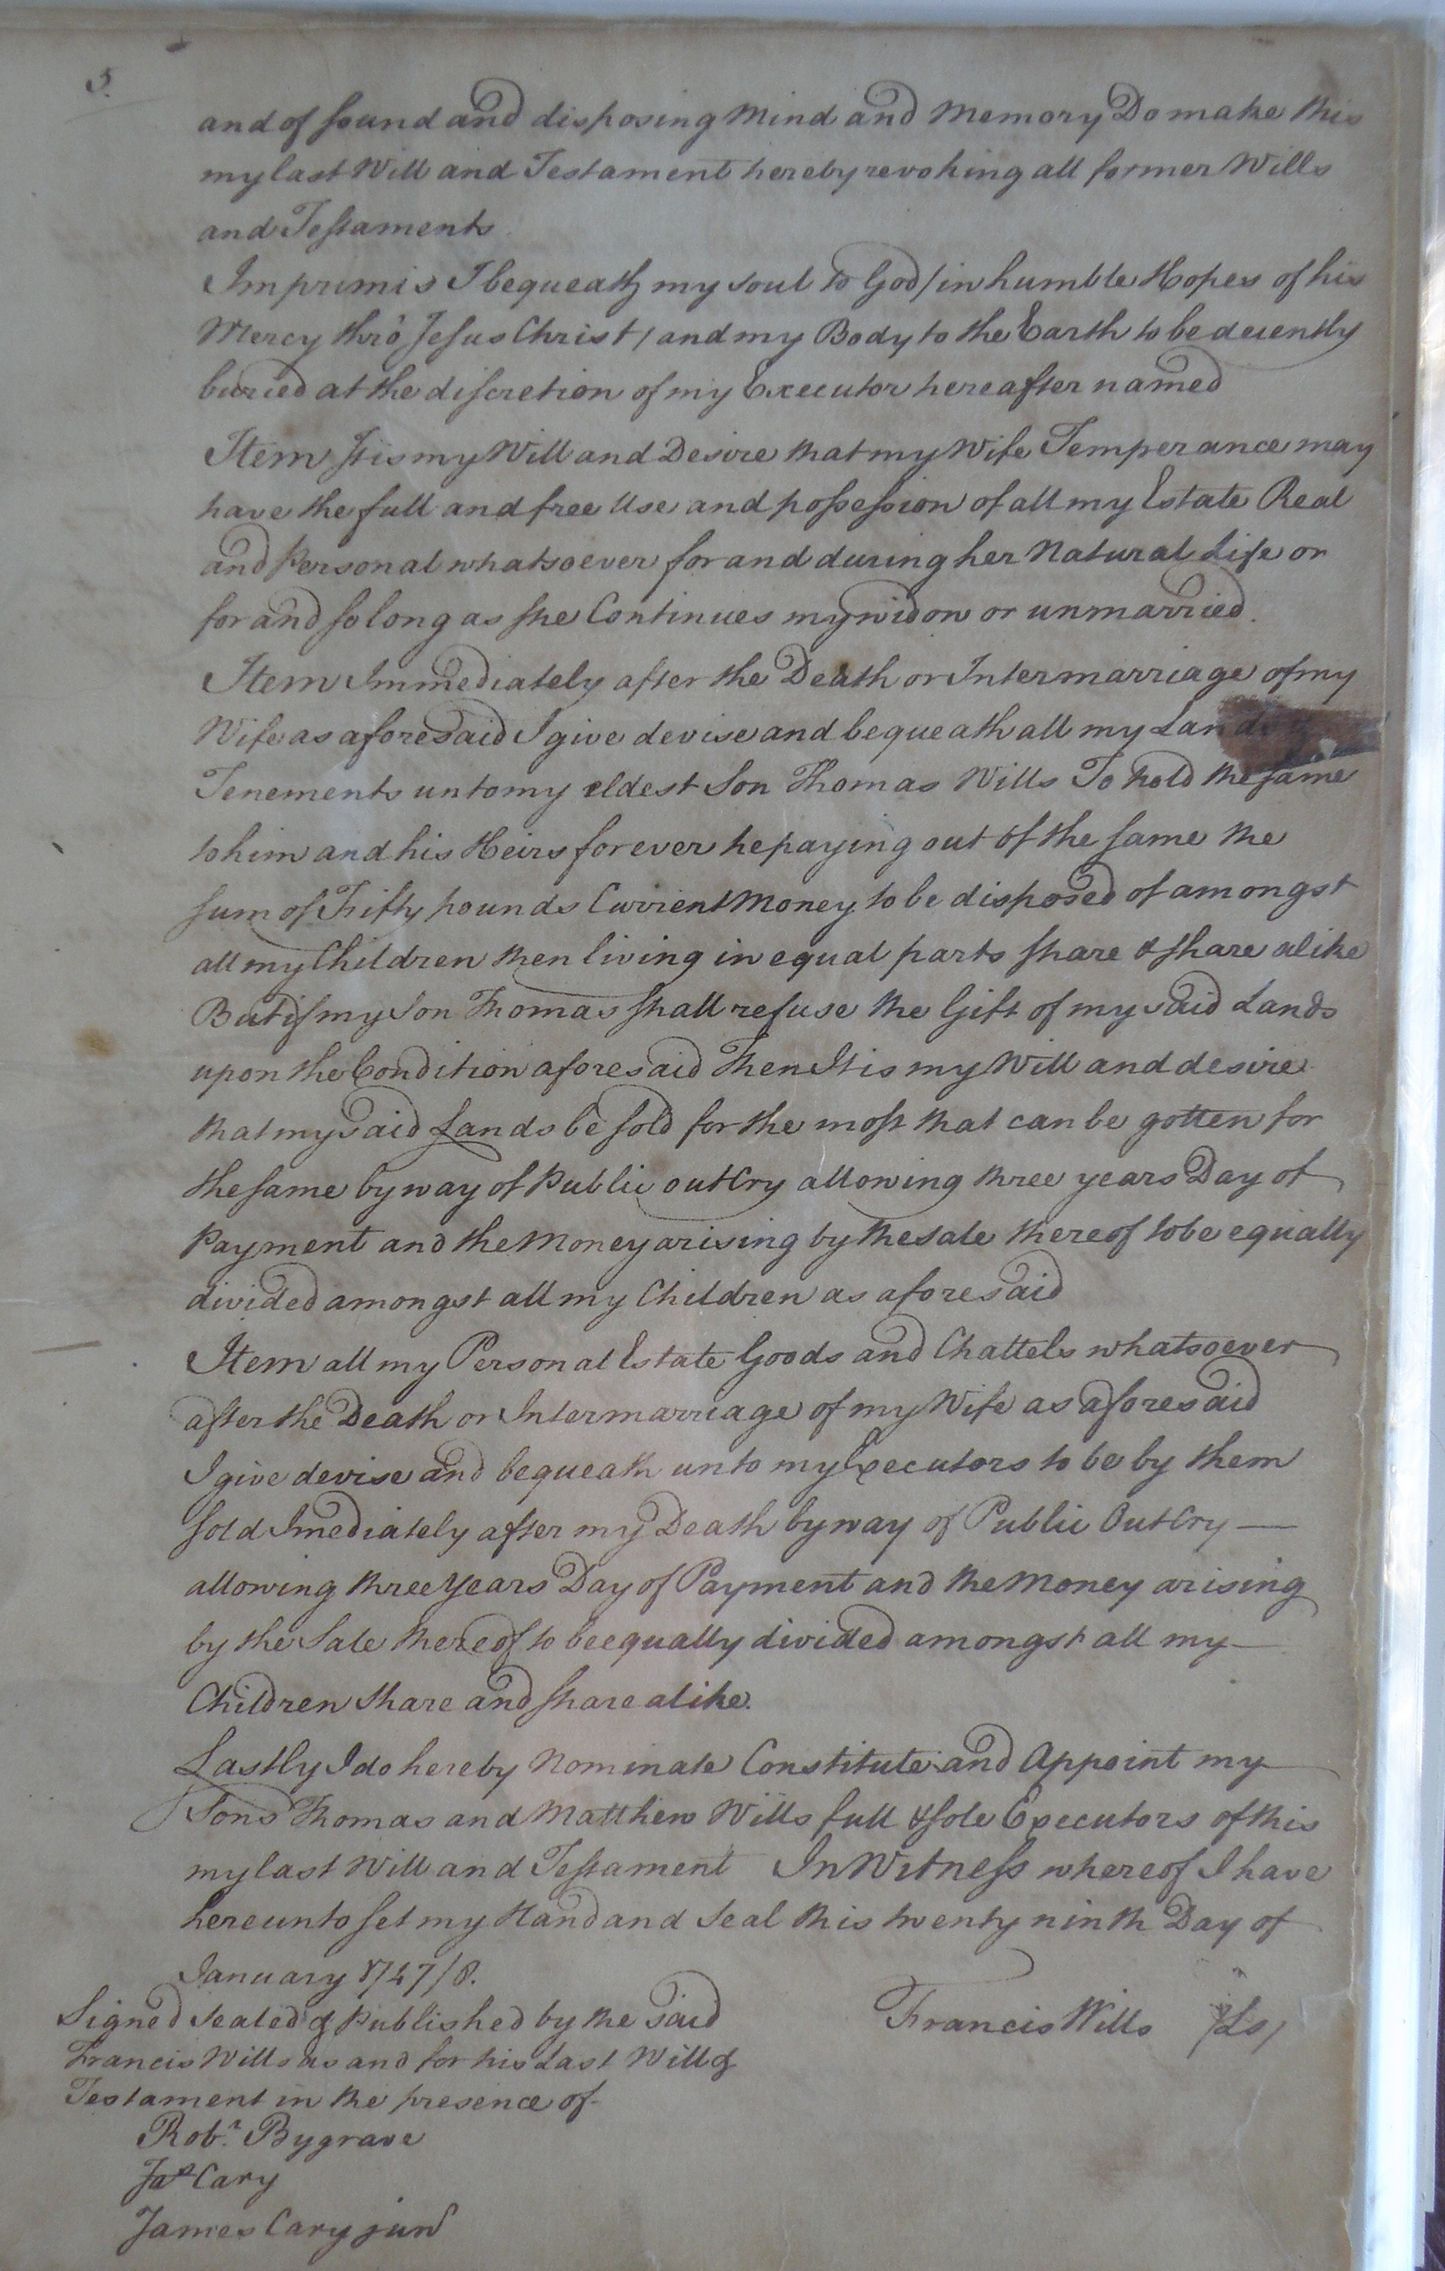 5.
and of sound and disposing Mind and Memory Do make this
my last Will and Testament hereby revoking all former Wills
and Testaments
Imprimis I bequeath my soul to God / in humble Hopes of his
Mercy thro' Jesus Christ / and my Body to the Earth to be decently
buried at the discretion of my Executor hereafter named
Item It is my Will and Desire that my Wife Temperance may
have the full and free Use and possession of all my Estate Real
and Personal whatsoever for and during her Natural Life or
for and so long as she Continues my widow or unmarried.
Item Immediately after the Death or Intermarriage of my
Wife as aforesaid I give devise and bequeath all my Lands
Tenements unto my eldest Son Thomas Wills To hold the same
to him and his Heirs forever he paying out of the same the
sum of Fifty pounds Current Money to be disposed of amongst
all my Children then living in equal parts share & share alike
But if my Son Thomas shall refuse the Gift of my said Lands
upon the Condition aforesaid Then It is my Will and desire
that my said Lands be sold for the most that can be gotten for
the same by way of Public outCry allowing three years Day of
Payment and the Money arising by the sale thereof to be equally
divided amongst all my Children as aforesaid
Item all my Personal Estate Goods and Chattels whatsoever
after the Death or Intermarriage of my Wife as aforesaid
I give devise and bequeath unto my Executors to be by them
sold Imediately after my Death by way of Public OutCry —
allowing three Years Day of Payment and the Money arising
by the Sale thereof to be equally divided amongst all my —
Children share and share alike.
Lastly I do hereby Nominate Constitute and Appoint my
Sons Thomas and Matthew Wills full & sole Executors of this
my last Will and Testament In Witness whereof I have
hereunto set my Hand and Seal this twenty ninth Day of
January 1747/8.
Signed Sealed & Published by the said
Francis Wills /Ls/
Francis Wills as and for his Last Will &
Testament in the presence of
Robt. Bygrave
Jas Cary
James Cary junr